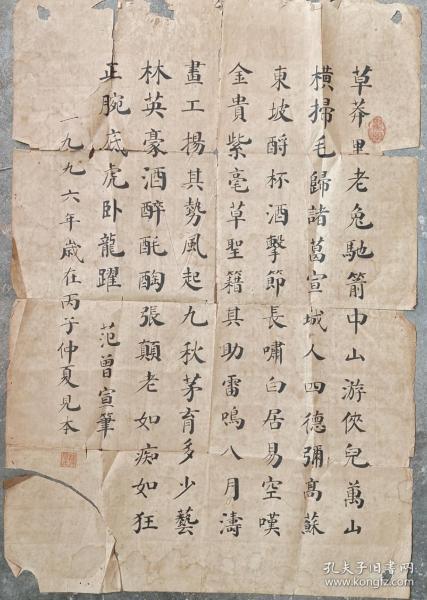 草莽里老兔馳箭中山游俠兒萬山
橫掃毛歸諸葛宣城人四德彌高蘇
東坡酹杯酒擊節長嘯白居易空嘆
金貴紫毫草聖籍其助雷鳴八月濤
畫工揚其勢風起九秋茅育多少藝
林英豪酒醉酕醄張顛老如痴如狂
正腕底虎卧龍躍 范曾宣筆
一九九六年歲在丙子仲夏見本
孔夫子旧书网
www.kongfz.com